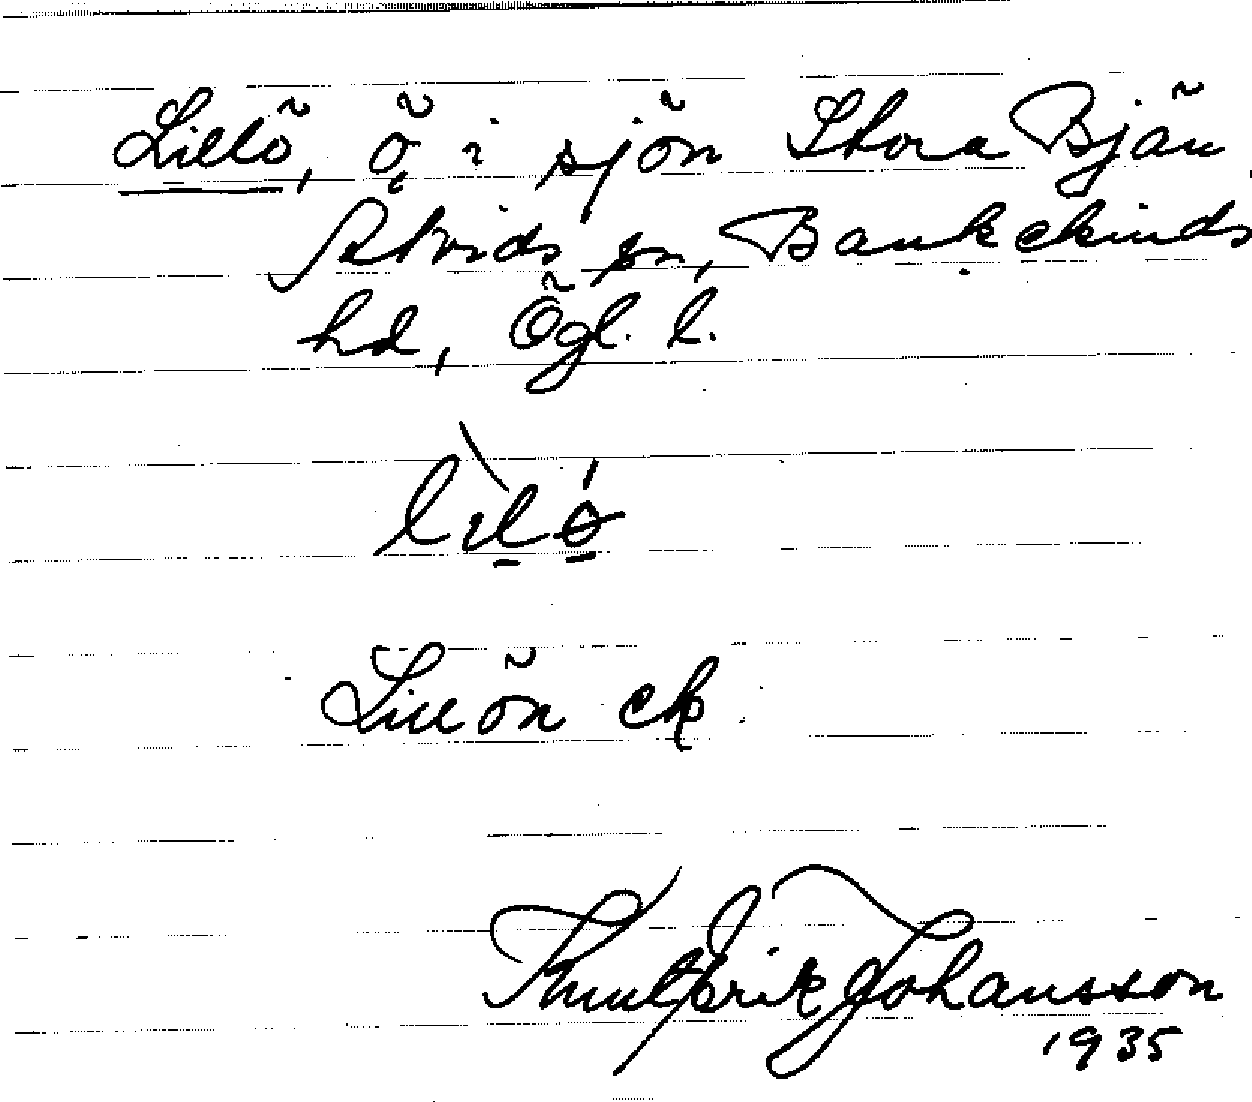 Lillö, ö i sjön Stora Bjän
Åtvids sn, Bankekinds
hd, Ögl. l.
Lillön ek.
Knut Erik Johansson
1935